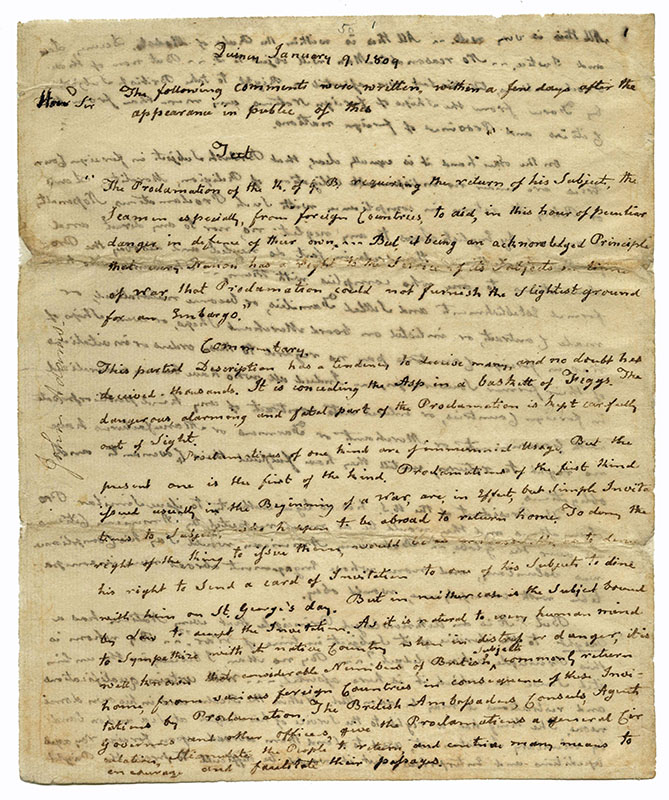 50 1
1
Quincy January 9. 1809
Hond Sir The following comments were written, within a few days after the
appearance in public of this
Text
"The Proclamation of the K. of G. B. requiring the return of his Subjects, the
Seamen especially, from foreign Countries, to aid, in this hour of peculiar
danger in defence of their own.... But it being an acknowledged Principle
that every Nation has a right to the Service of its Subjects in time
of War, that Proclamation could not furnish the Slightest ground
for an Embargo.
Commentary.
This partial Description has a tendency to decieve many, and no doubt has
decieved thousands. It is concealing the Asp in a baskett of Figgs. The
dangerous, alarming and fatal part of the Proclamation is kept carefully
out of Sight.
Proclamations of one kind are of immemorial Usage. But the
present one is the first of the kind. Proclamations of the first kind
issued usually in the Beginning of a War, are, in Effect, but Simple Invita
tions to Subjects who happen to be abroad to return home. To deny the
right of the King to issue them, would be as to deny
his right to Send a card of Invitation to one of his Subjects to dine
with him on St. George's day. But in neither case is the Subject bound
by Law to accept the Invitation. As it is natural to every human mind
to Sympathize with its native Country when in distress or danger, it is
well known that considerable Numbers of British Subjects commonly return
home, from various foreign Countries in consequence of these Invi-
tations by Proclamation. The British Ambassadors, Consuls, Agents
Governors and other offices, give the Proclamations a general Cir
culation, the People to return, and contrive many means to
encourage and facilitate their passages.
John Adams